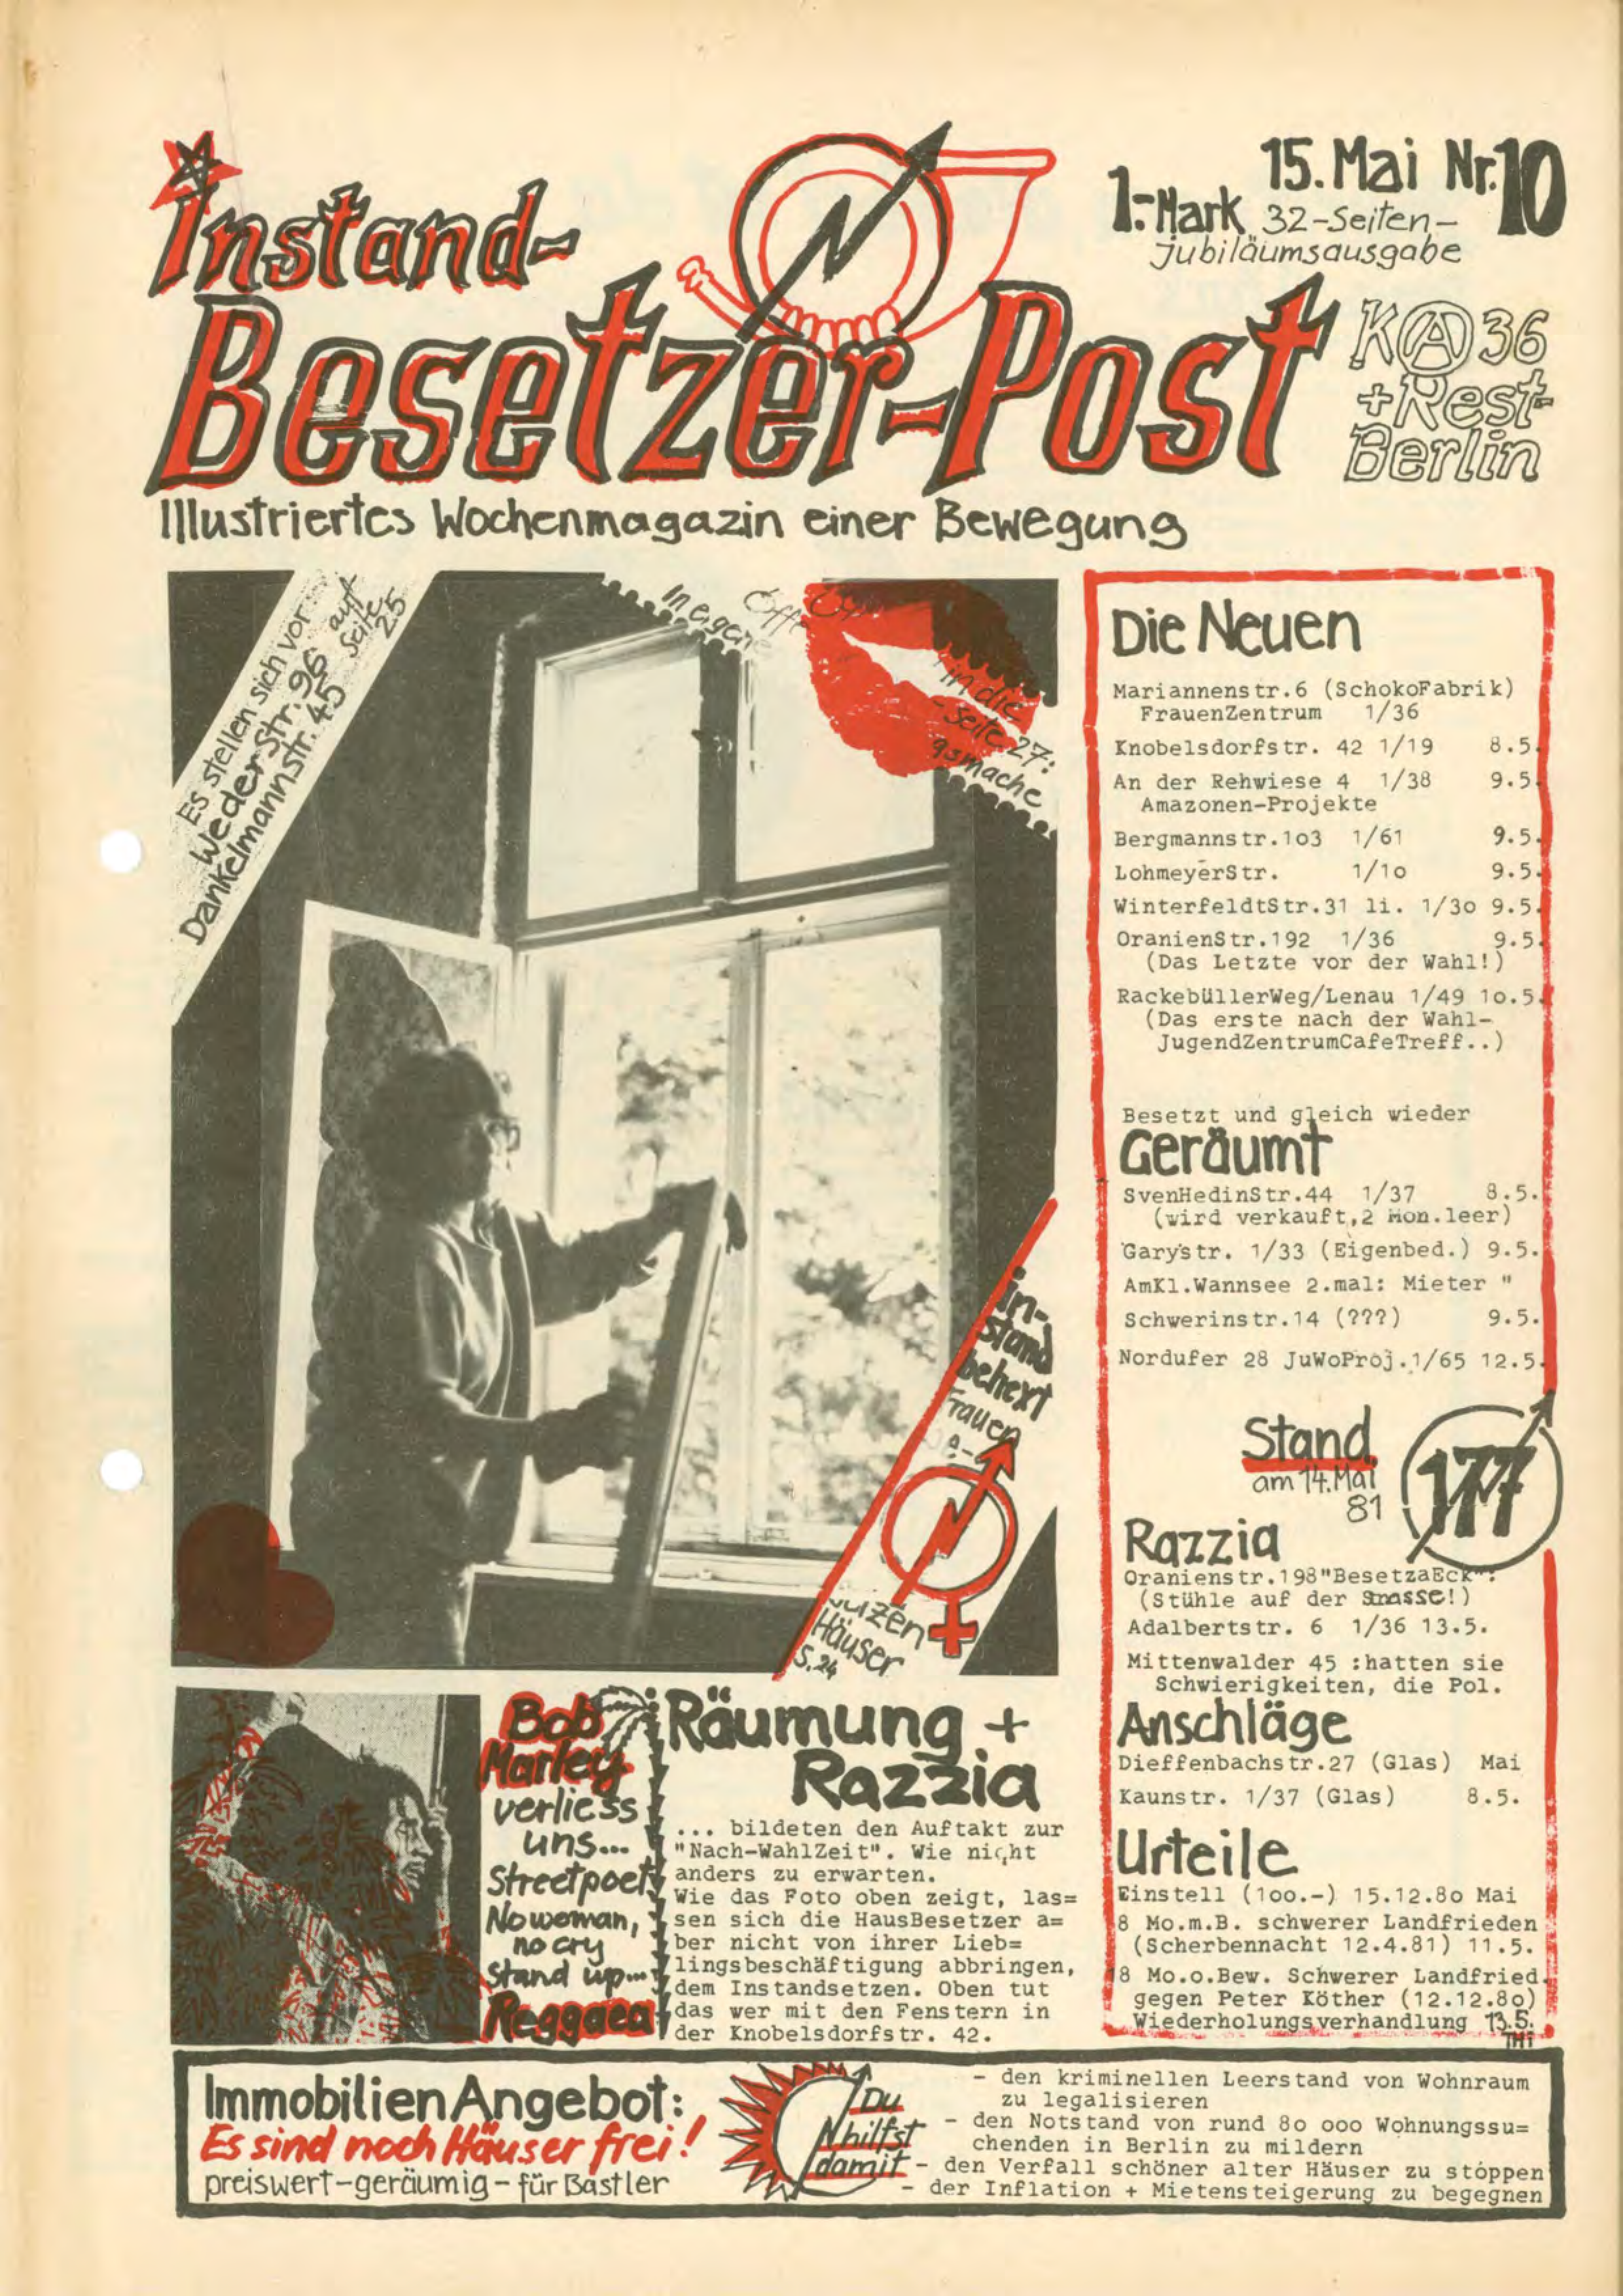 Instand-
Besetzer-Post
15. Mai Nr. 10
1.- Mark 32-Seiten-
Jubiläumsausgabe
KA36
+Rest-
Berlin
Illustriertes Wochenmagazin einer Bewegung
Es stellen sich vor
Weder Str. 96 auf
Dankelmannstr. 45 Seite 25
In eigene
Öffe
in die
-seite 27:
gsmache
in-
stand
behext
Frauen
Häuser
S. 24
Die Neuen
Mariannenstr.6 (SchokoFabrik)
FrauenZentrum 1/36
Knobelsdorfstr. 42 1/19 8.5.
An der Rehwiese 4 1/38 9.5.
Amazonen-Projekte
Bergmannstr.1o3 1/61 9.5.
LohmeyerStr. 1/1o 9.5.
WinterfeldtStr.31 li. 1/3o 9.5.
OranienStr.192 1/36 9.5.
(Das Letzte vor der Wahl!)
RackebüllerWeg/Lenau 1/49 1o.5.
(Das erste nach der Wahl-
JugendZentrumCafeTreff..)
Besetzt und gleich wieder
Geräumt
SvenHedinStr.44 1/37 8.5.
(wird verkauft,2 Mon.leer)
Garystr. 1/33 (Eigenbed.) 9.5.
AmKl.Wannsee 2.mal: Mieter "
Schwerinstr.14 (???) 9.5.
Nordufer 28 JuWoProj.1/65 12.5.
Stand
am 14. Mai
81
177
Razzia
Oranienstr.198"BesetzaEck":
(Stühle auf der Strasse!)
Adalbertstr. 6 1/36 13.5.
Mittenwalder 45 :hatten sie
Schwierigkeiten, die Pol.
Anschläge
Dieffenbachstr.27 (Glas) Mai
Kaunstr. 1/37 (Glas) 8.5.
Urteile
Einstell (1oo.-) 15.12.8o Mai
8 Mo.m.B. schwerer Landfrieden
(Scherbennacht 12.4.81) 11.5.
18 Mo.o.Bew. Schwerer Landfried.
gegen Peter Köther (12.12.8o)
Wiederholungsverhandlung 13.5.
Bob
Marley
verliess
uns...
Streetpoet
No woman,
no cry
Stand up...
Reggaea
Räumung +
Razzia
... bildeten den Auftakt zur
"Nach-WahlZeit". Wie nicht
anders zu erwarten.
Wie das Foto oben zeigt, las=
sen sich die HausBesetzer a=
ber nicht von ihrer Lieb=
lingsbeschäftigung abbringen,
dem Instandsetzen. Oben tut
das wer mit den Fenstern in
der Knobelsdorfstr. 42.
ImmobilienAngebot:
Es sind noch Häuser frei!
preiswert-geräumig-für Bastler
Du
hilfst
damit
- den kriminellen Leerstand von Wohnraum
zu legalisieren
- den Notstand von rund 8o ooo Wohnungssu=
chenden in Berlin zu mildern
- den Verfall schöner alter Häuser zu stoppen
- der Inflation + Mietensteigerung zu begegnen